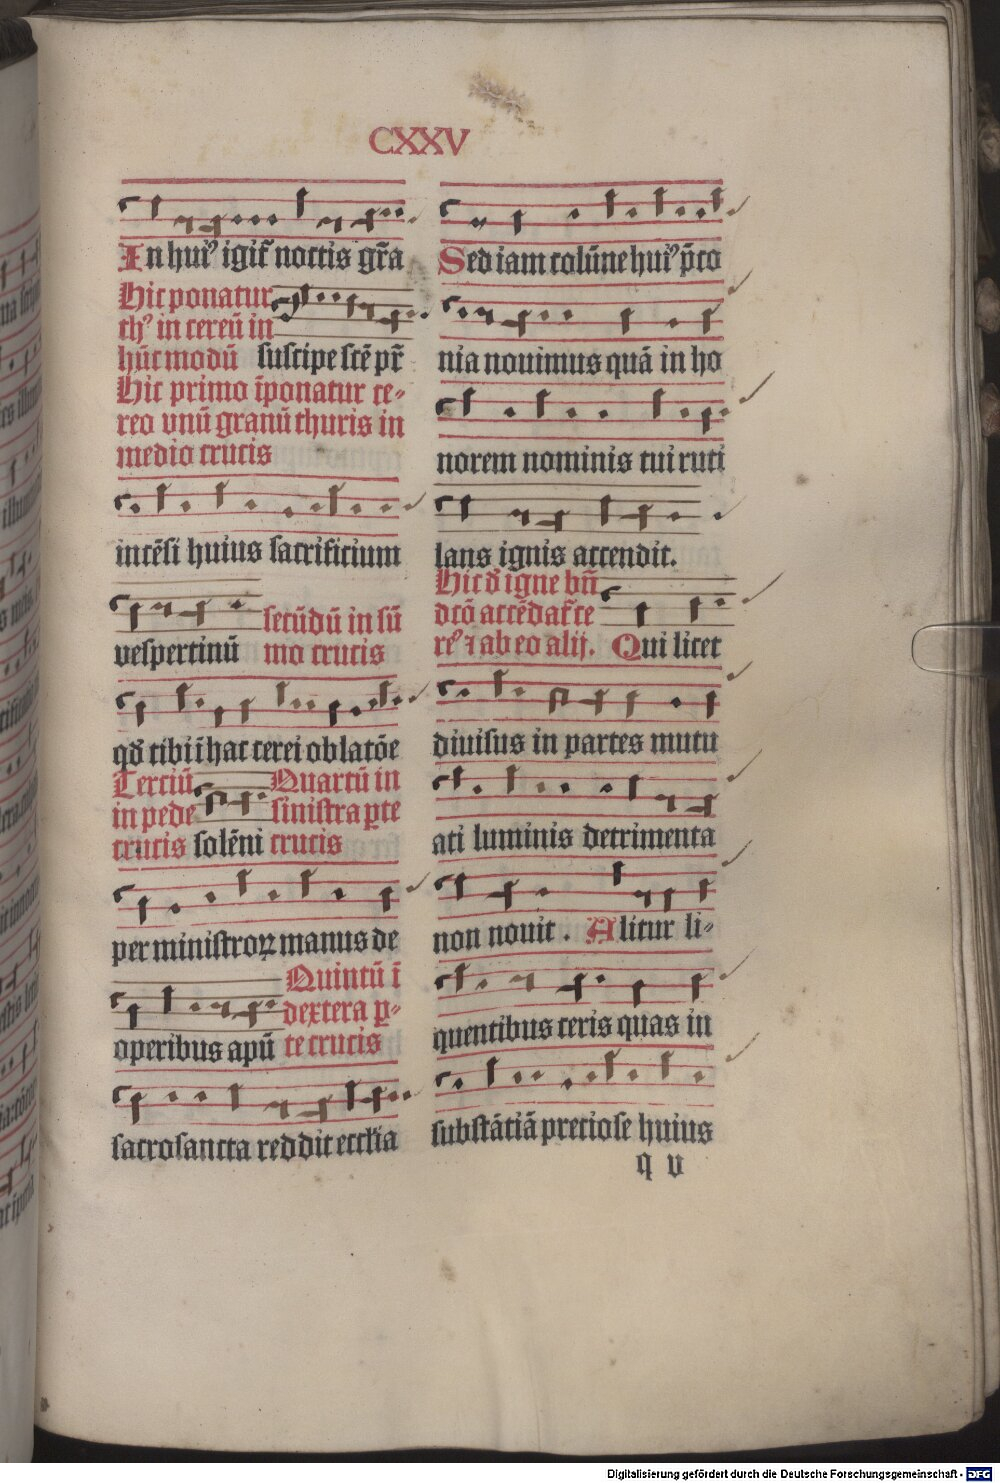 CXXV
In huiꝰ igit̃ noctis gr̃a
Hic ponatur
thꝰ in cereũ in
hũc modũ suscipe scẽ pr̃
Hic primo ĩponatur ce-
reo vnũ granũ thuris in
medio crucis
incẽsi huius sacrificium
vespertinũ
secũdũ in sũ
mo crucis
qđ tibi ĩ hac cerei oblatõe
Terciũ
in pede
crucis solẽni
Quartũ in
sinistra ꝑte
crucis
per ministroꝝ manus de
operibus apũ
Quintũ ĩ
dextera ꝑ-
te crucis
sacrosancta reddit eccľia
Sed iam colũne huiꝰ p̃co
nia nouimus quã in ho
norem nominis tui ruti
lans ignis accendit.
Hic đ igne bñ
dcõ accẽdat̃ ce
reꝰ ⁊ ab eo alij. Qui licet
diuisus in partes mutu
ati luminis detrimenta
non nouit. Alitur li-
quentibus ceris quas in
substãtiã preciose huius
q v
Digitalisierung gefördert durch die Deutsche Forschungsgemeinschaft - DFG